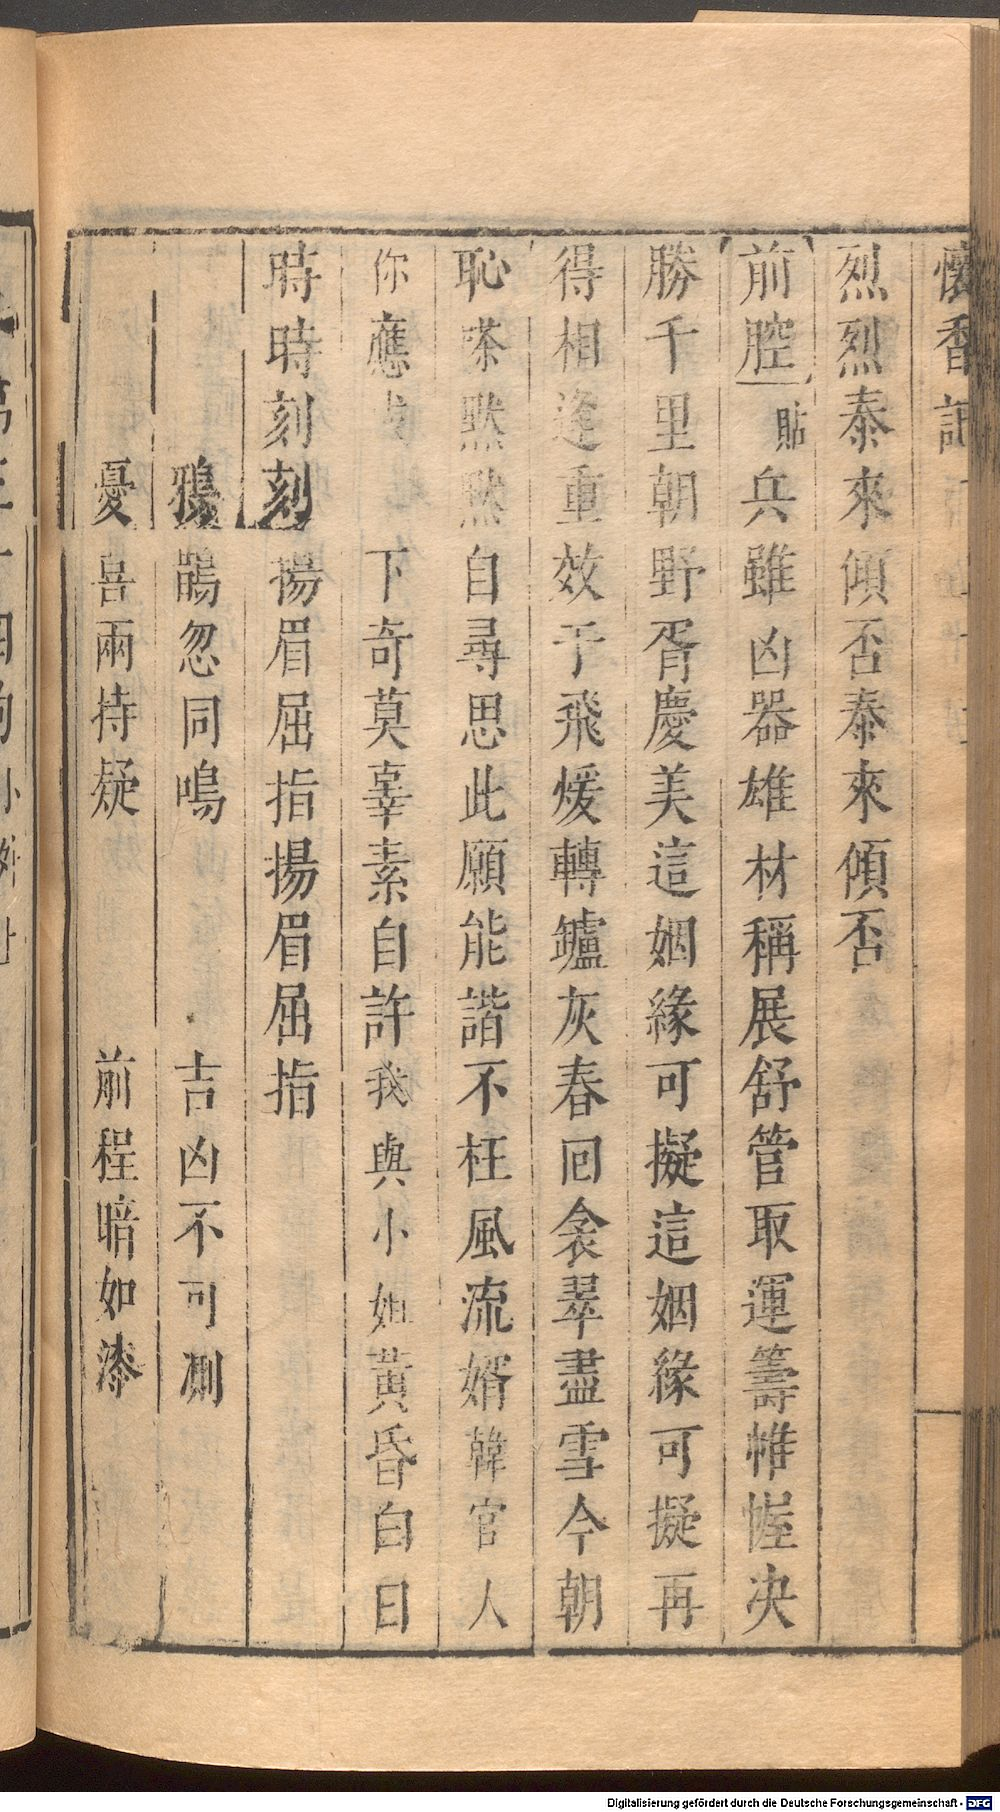 懷香記
烈烈泰來傾否泰來傾否
前腔 貼 兵雖凶器雄材稱展舒管取運籌帷幄决
勝千里朝野胥慶美這姻緣可擬這姻緣可擬再
得相逢重效于飛煖轉罏灰春回衾翠盡雪今朝
恥 嗏默默自尋思此願能諧不枉風流婿韓官人
你應 下奇莫辜素自許我與小姐黃昏白日
時時刻刻揚眉屈指揚眉屈指
鴉鵲忽同鳴 吉凶不可測
憂喜兩持疑 前程暗如漆
Digitalisierung gefördert durch die Deutsche Forschungsgemeinschaft - DFG